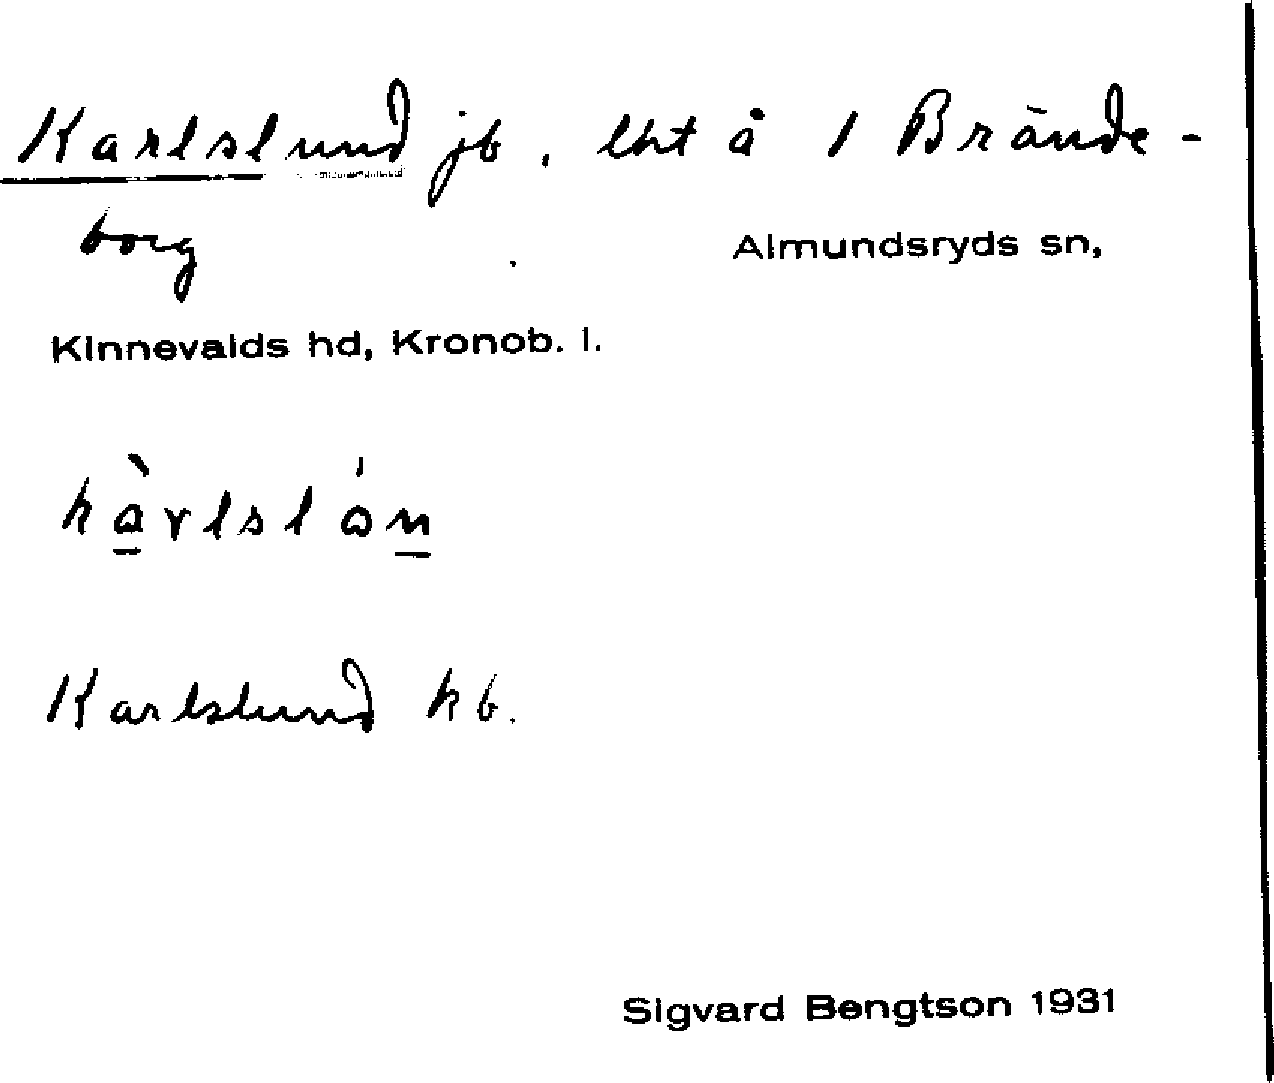 Karlslund jb. lht å 1 Brände-
borg
Almundsryds sn,
Kinnevalds hd, Kronob. l.
kàrlslón
Karlslund kb.
Sigvard Bengtson 1931